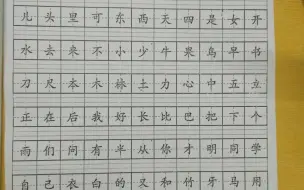 儿 头 里 可 东 西 天 四 是 女 开
水 去 来 不 小 少 牛 果 鸟 早 书
刀 尺 本 木 林 土 力 心 中 五 立
正 在 后 我 好 长 比 巴 把 下 个
雨 们 问 有 半 从 你 才 明 同 学
自 己 衣 白 的 又 和 竹 牙 马 用